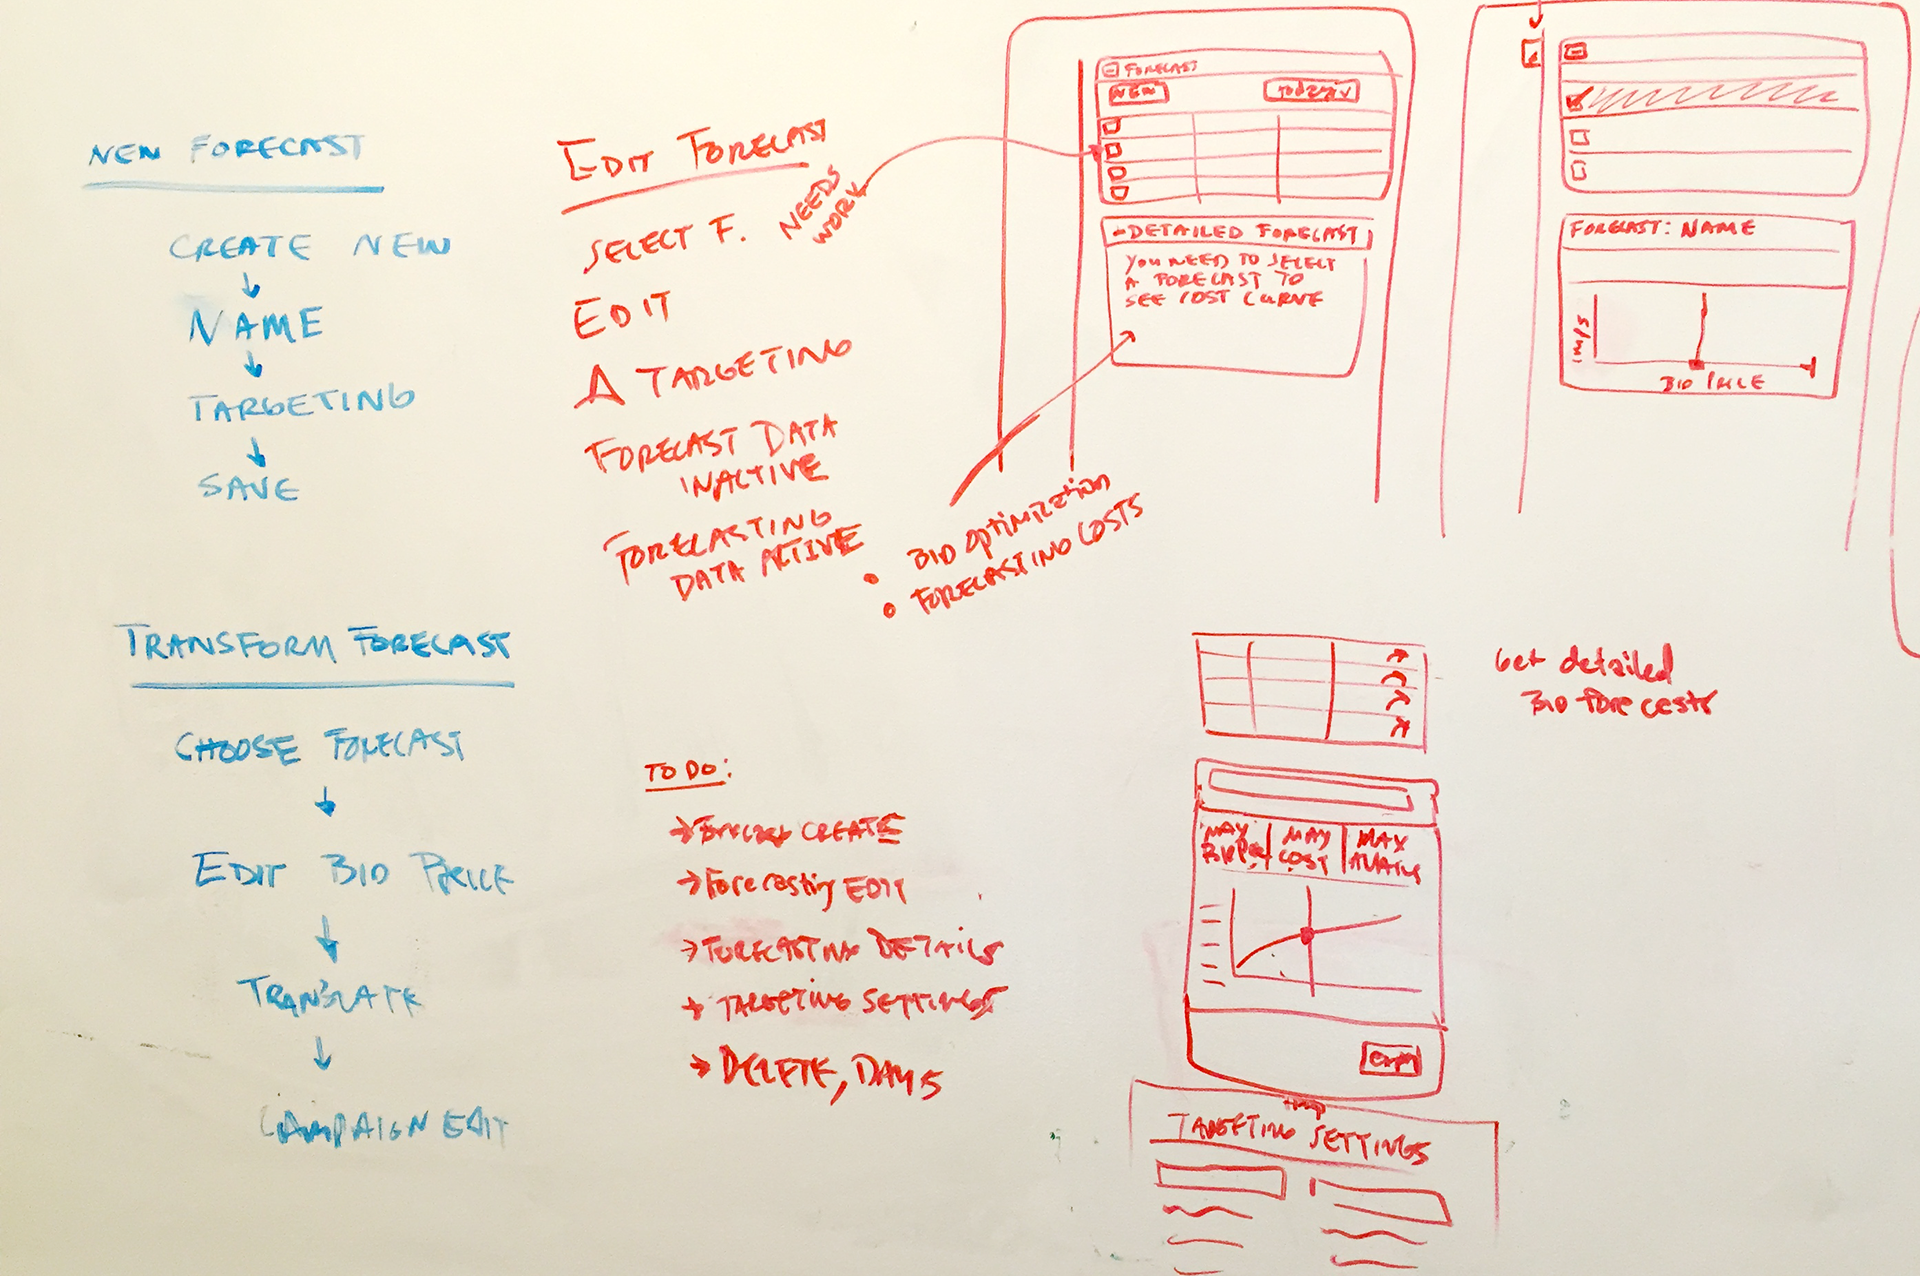 NEW FORECAST
CREATE NEW
NAME
TARGETING
SAVE
TRANSFORM FORECAST
CHOOSE FORECAST
EDIT BID PRICE
TRANSLATE
CAMPAIGN EDIT
EDIT FORECAST
SELECT F.
NEEDS
WORK
EDIT
Δ TARGETING
FORECAST DATA
INACTIVE
FORECASTING
DATA ACTIVE
• BID optimization
• FORECASTING COSTS
TO DO:
→ Forecast CREATE
→ Forecasting EDIT
→ FORECASTING DETAILS
→ TARGETING SETTINGS
→ DELETE, DAYS
FORECAST
NEW
-DETAILED FORECAST
YOU NEED TO SELECT
A FORECAST TO
SEE COST CURVE
FORECAST: NAME
BID PRICE
Get detailed
BID forecasts
MAX
MAX
COST
MAX
TARGETING SETTINGS